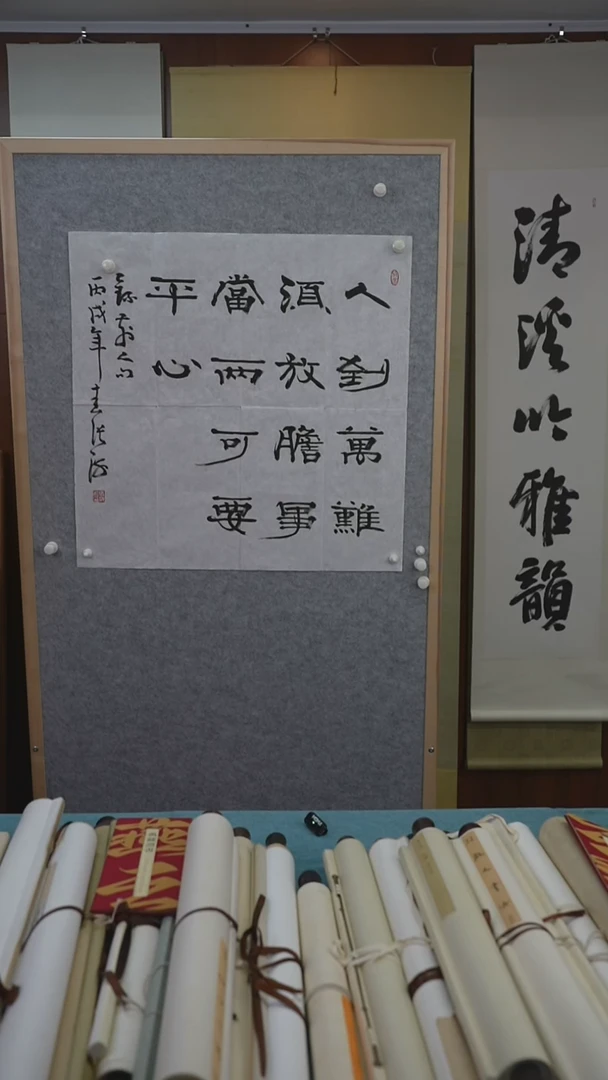 人到萬難
須放膽事
當兩可要
平心
錄前人句
丙戌年
清溪吟雅韻